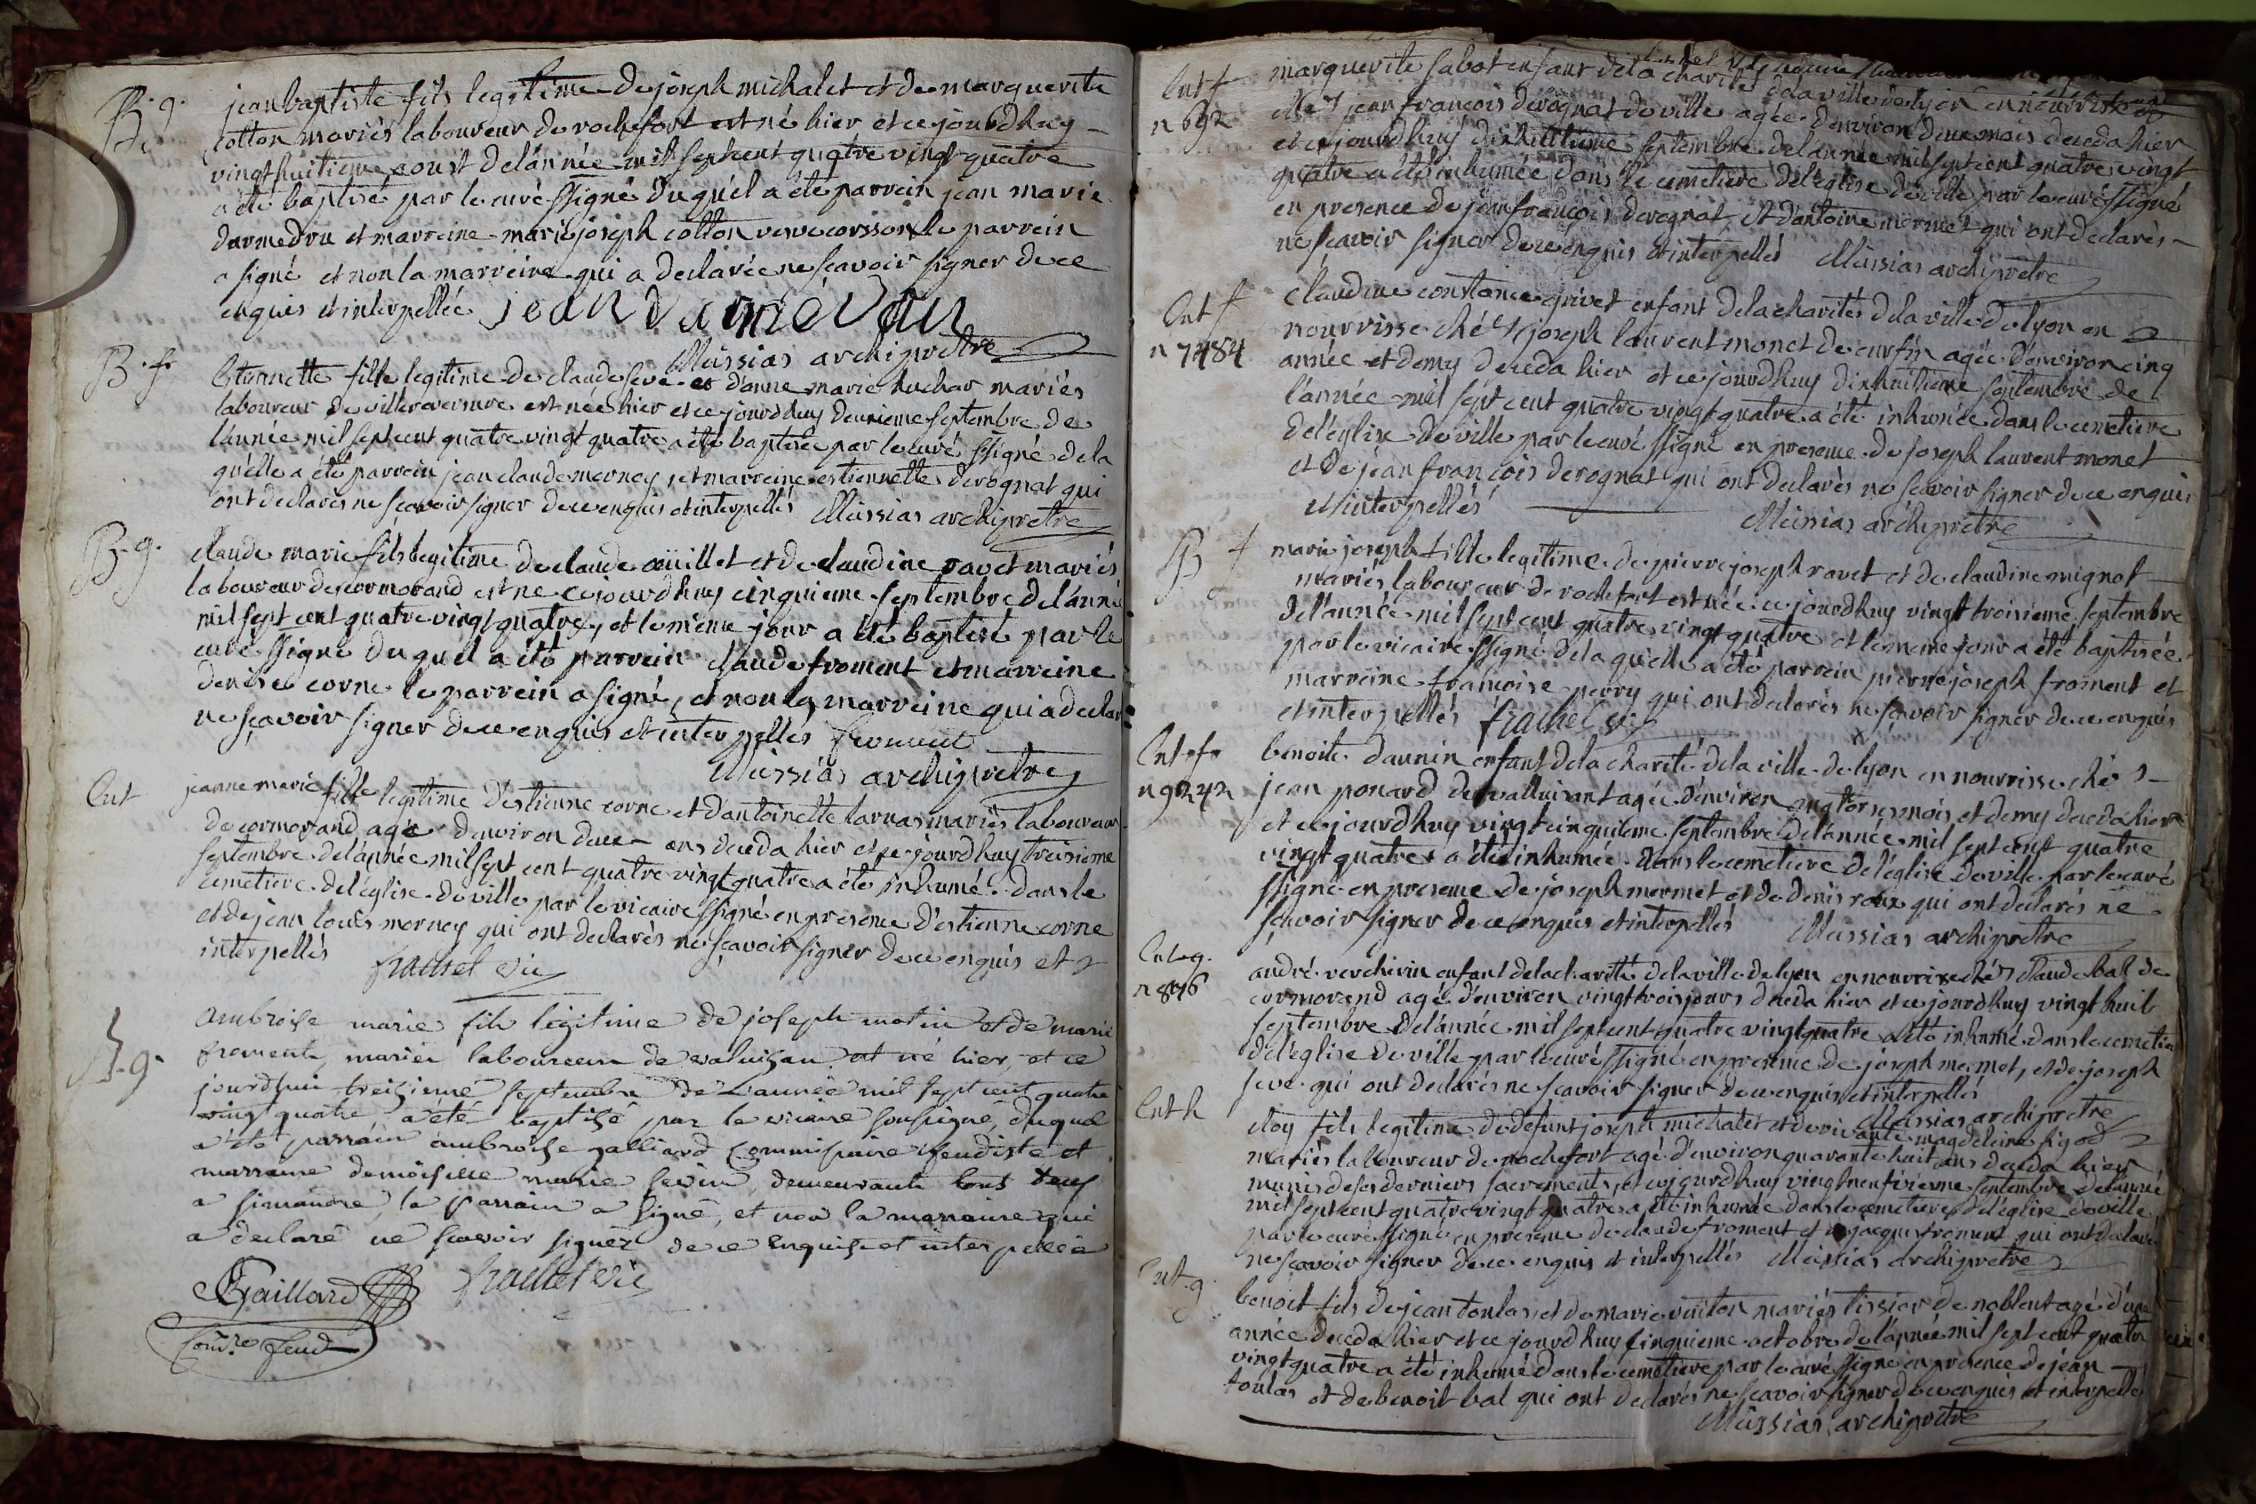 B. g.
jean baptiste fils legitime de joseph michalet et de marguerite
cotton mariés laboureur de rochefort est né hier et ce jourdhuy
vingt huitieme aoust de lánnée mil sept cent quatre vingt quatre
a été baptisé par le curé ssigné duquél a été parrein jean marie
darmedru et marreine marie joseph cotton veuve corsson le parrein
a signé et non la marreine qui a declarée ne scavoir signer de ce
enquis et interpellée jean darmédru
Mussias archiprêtre
B. f.
Estiennette fille legitime de claude seve et d'anne marie huchar mariés
laboureur de villereversure est née hier et ce jourdhuy deuxieme septembre de
lánnée mil sept cent quatre vingt quatre a été baptisée par le curé ssigné de la
quélle a été parrein jean claude mornay, et marreine estiennette derognat qui
ont declarés ne scavoir signer de ce enquis et interpellés Mussias archiprêtre
B. g.
claude marie fils legitime de claude oüillet et de claudine ravet mariés
laboureur de cormorand est né ce jourdhuy cinquieme septembre de lánnée
mil sept cent quatre vingt quatre, et le méme jour a été baptisé par le
curé ssigné du quel a été parrein claude froment et marreine
denise corne le parrein a signé, et non la marreine qui a declaré
ne sçavoir signer de ce enquis et interpellés froment
Mussias archiprêtre
Ent
jeanne marie fille legitime d'estienne corne et dantoinette larnas mariés laboureur
de cormorand agée denviron deux ans deceda hier et ce jourdhuy treisieme
septembre de lánnée mil sept cent quatre vingt quatre a été inhumé dans le
cemetiere de léglise de ville par le vicaire ssigné en presence d'estienne corne
et de jean loüis mornay qui ont declarés ne sçavoir signer de ce enquis et
interpellés frachet vic
B. g.
ambroise marie fils légitime de joseph matin et de marie
froment, mariés laboureur de valuisan est né hier, et ce
jourdhui treisiemé septembre de L'année mil sept cent quatre
vingt quatre a été baptisé par le vicaire soussigné, duquel
a été parrain ambroise galliard Commissaire feudiste et
marraine demoiselle marie sevin, demeurants tous deux
a simandre, le parrain a signé, et non la marraine qui
a declaré ne scavoir signer de ce Enquise et interpellée
Gaillard frachet vic
Com.re feud
Ent f
n 692
marguerite sabot enfant de la charités dela ville de lyon en nourrisse
ché jean francois derognat de ville agée denviron deux mois deceda hier
et ce jourdhuy dixhuitieme septembre de lánnée mil sept cent quatre vingt
quatre a été inhumée dans le cemetiere de léglise de ville par le curé ssigné
en presence de jean francois derognat, et d'antoine mermet qui ont declarés
ne scavoir signer de ce enquis et interpellés Mussias archiprêtre
Ent f
n 7484
claudine constance grivet enfant de la charités dela ville de lyon en
nourrisse ché joseph laurent monet de curfin agée denviron cinq
année et demy deceda hier et ce jourdhuy dixhuitieme septembre de
lánnée mil sept cent quatre vingt quatre a été inhumée dans le cemetiere
de léglise de ville par le curé ssigné en presence de joseph laurent monet
et de jean francois derognat qui ont declarés ne scavoir signer de ce enquis
et interpellés Mussias archiprêtre
B f
marie joseph fille legitime de pierre joseph ravet et de claudine mignot
mariés laboureur de rochefort est née ce jourdhuy vingt troisieme septembre
de lánnée mil sept cent quatre vingt quatre et le meme jour a été baptisée
par le vicaire ssigné de la quélle a été parrein pierre joseph froment et
marreine francoise perry qui ont declarés ne scavoir signer de ce enquis
et interpellés frachet vic
Ent f
n 9242
benoite daunin enfant de la charité dela ville de lyon en nourrisse ché
jean ponard de valluisant agée d'environ quatorse mois et demy deceda hier
et ce jourdhuy vingt cinquieme septembre de lánnée mil sept cent quatre
vingt quatre a été inhumée dans le cemetiere de léglise de ville par le curé
ssigné en presence de joseph mermet et de denis roux qui ont declarés ne
sçavoir signer de ce enquis et interpellés Mussias archiprêtre
Ent g.
n 846
andré verchirin enfant de la charité dela ville de lyon en nourrise ché claude bal de
cormorend agé d'environ vingt trois jours deceda hier et ce jourdhuy vingt huit
septembre de lánnée mil sept cent quatre vingt quatre a été inhumé dans le cemetiere
de léglise de ville par le curé ssigné en presence de joseph mermet, et de joseph
seve qui ont declarés ne scavoir signer de ce enquis et interpellés
Mussias archiprêtre
Ent h
eloy fils legitime de defunt joseph michalet et de vivante magdeleine figod
mariés laboureur de rochefort agé d'environ quarante huit ans deceda hier
munis de ses derniers sacrements, et ce jourdhuy vingt neufvieme septembre de lánnée
mil sept cent quatre vingt quatre a été inhumée dans le cemetiere de léglise de ville
par le curé ssigné en presence de claude froment et de jacques froment qui ont declarés
ne sçavoir signer de ce enquis et interpellés Mussias archiprêtre
Ent. g.
benoit fils de jean toulas et de marie vuiton mariés tissier de noblent agé d'une
année deceda hier et ce jourdhuy cinquieme octobre de lánnée mil sept cent quatre
vingt quatre a été inhumé dans le cemetiere par le curé ssigné en presence de jean
toulas et de benoit bal qui ont declarés ne scavoir signer de ce enquis et interpellés
Mussias archiprêtre